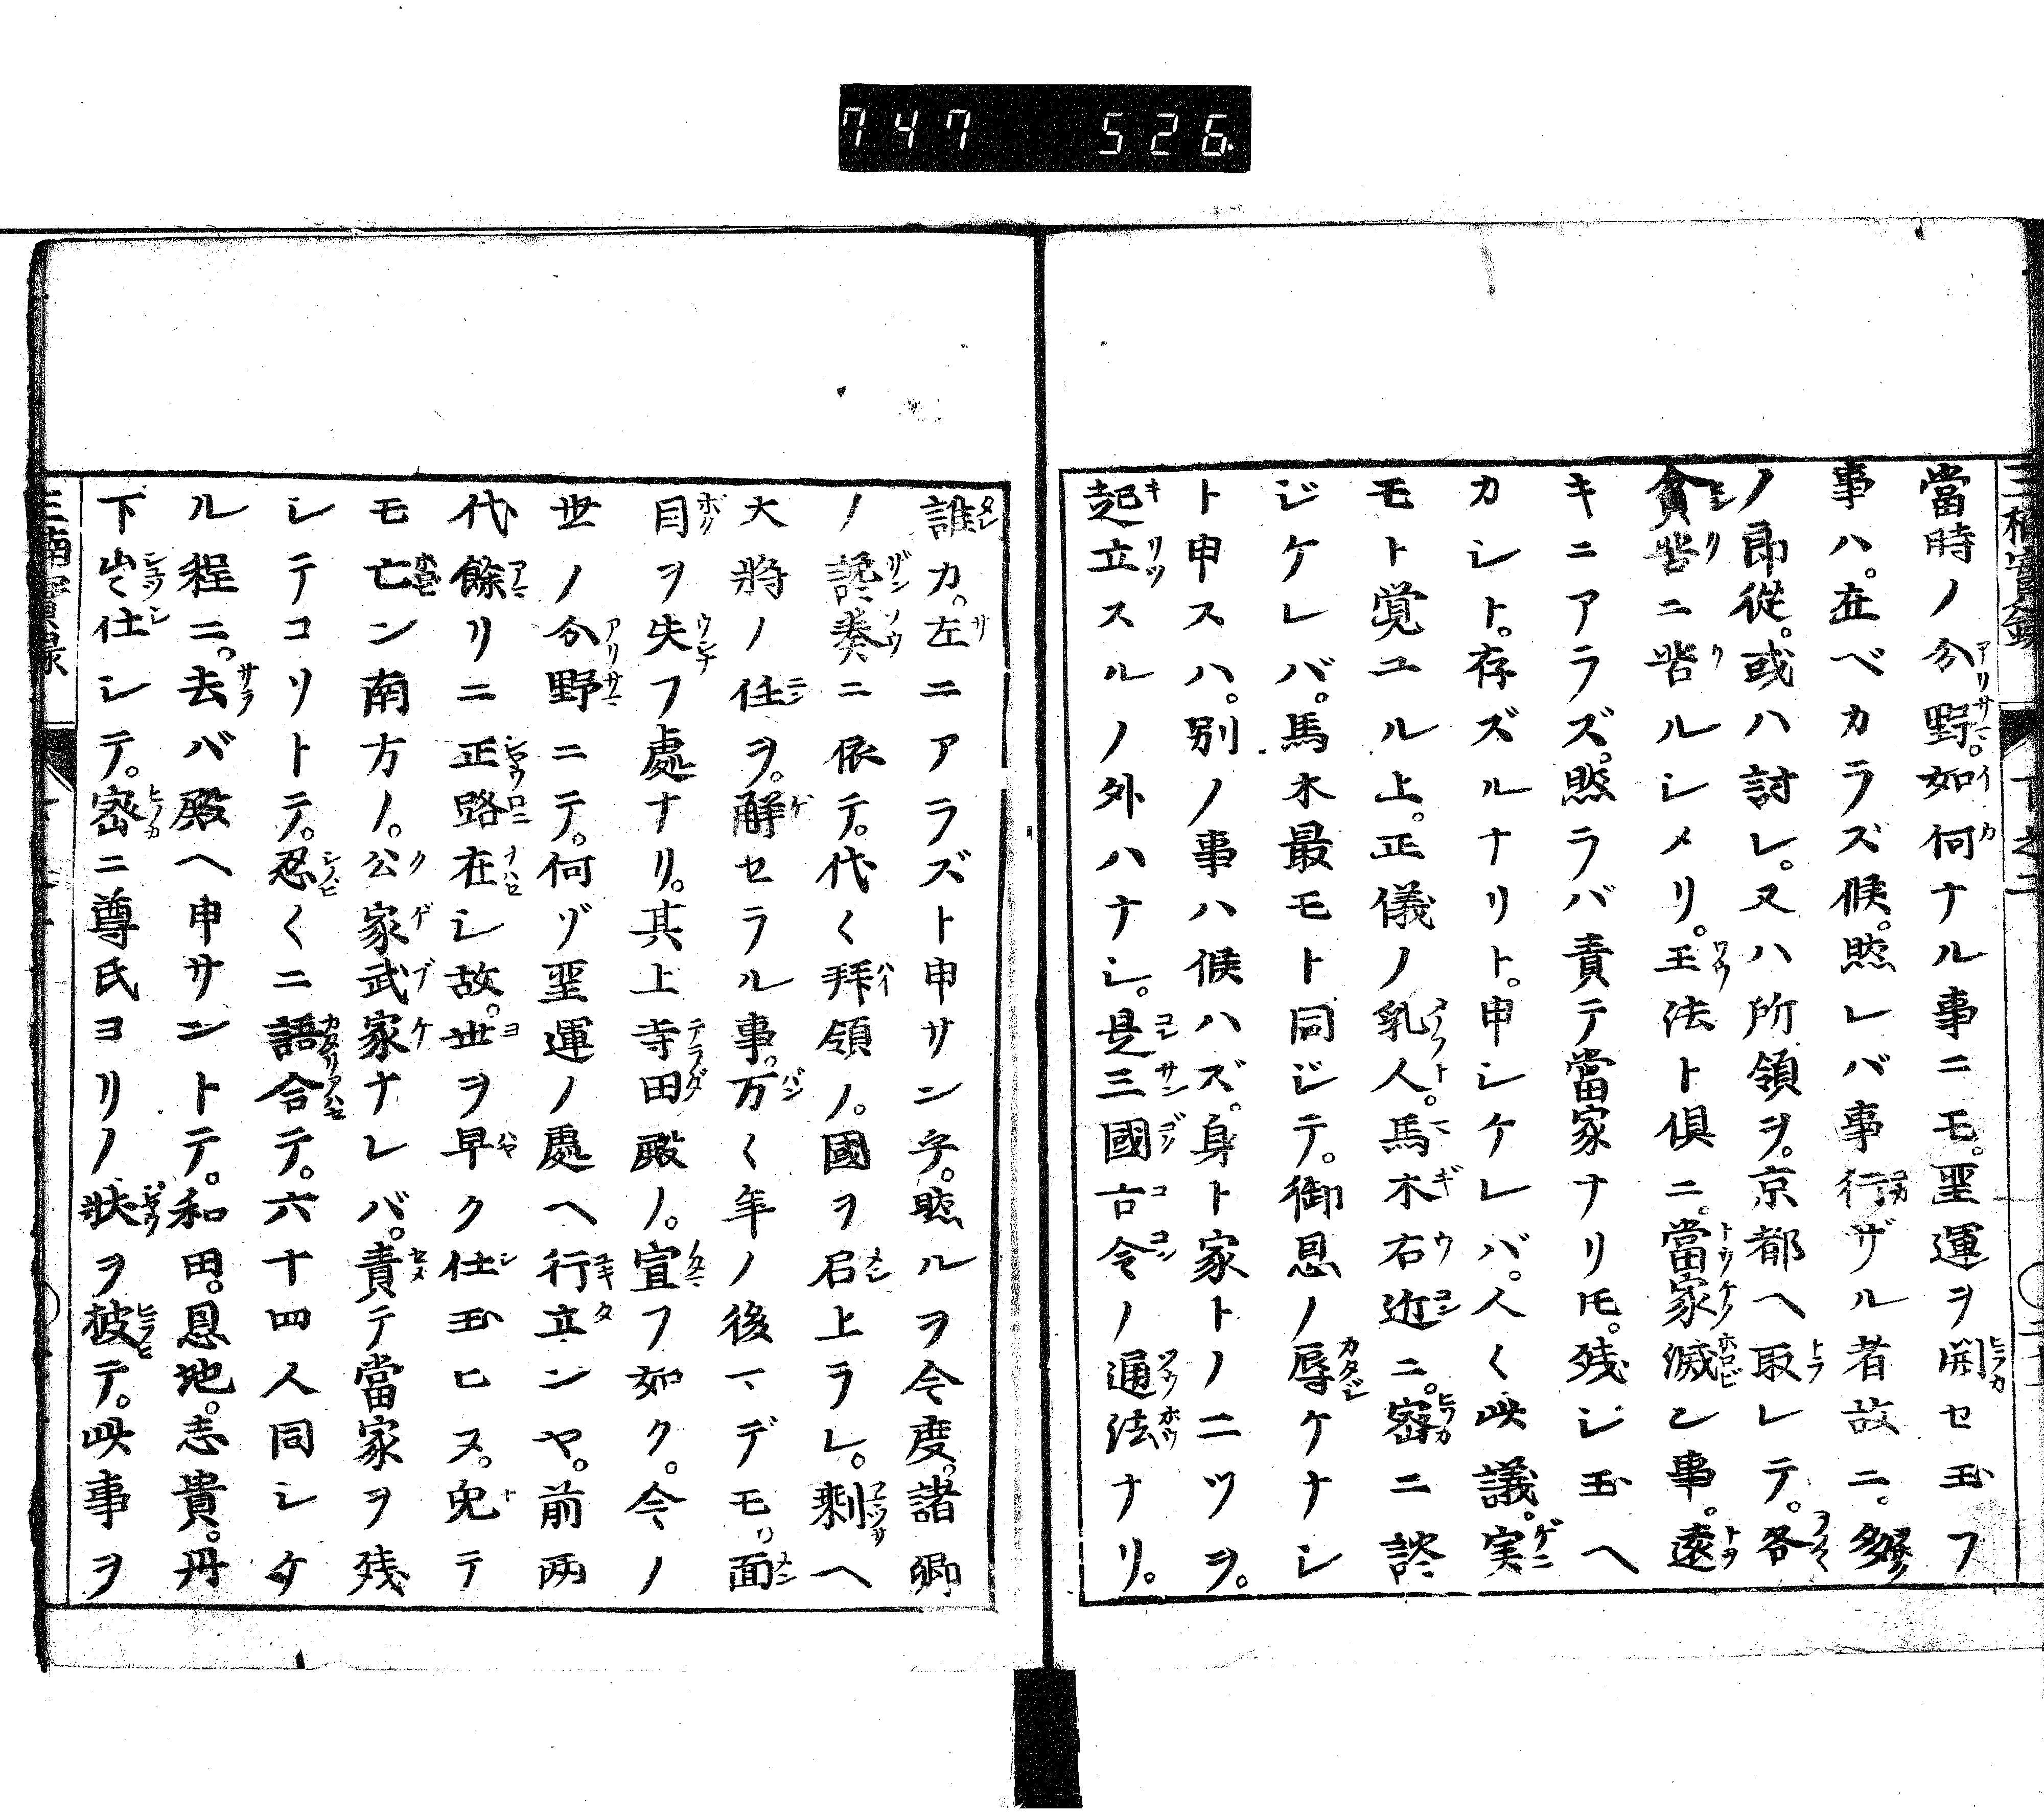 747 526
當時ノ分野。如何ナル事ニモ。聖運ヲ開セ玉フ
事ハ。在ベカラズ候。然レバ事行ザル者故ニ。多
ノ郎從。或ハ討レ。又ハ所領ヲ。京都ヘ取レテ。各
貪ニ苦ルシメリ。王法ト倶ニ。當家滅シ事。遠
キニアラズ。然ラバ責テ當家ナリ圧。残シ玉ヘ
カシト。存ズルナリト。申シケレバ。人〱此議。実
モト覚ユル上。正儀ノ乳人。馬木右近ニ。密ニ談
ジケレバ。馬木最モト同ジテ。御恩ノ辱ケナシ
ト申スハ。別ノ事ハ候ハズ。身ト家トノ二ツヲ。
起立スルノ外ハナシ。是三國古今ノ通法ナリ。
誰カ。左ニアラズト申サン乎。然ルヲ今度。諸卿
ノ讒奏ニ依テ。代〱拜領ノ。國ヲ召上ラレ。剰ヘ
大將ノ任ヲ。解セラル事。万〱年ノ後マデモ。面
目ヲ失フ處ナリ。其上寺田殿ノ。宣フ如ク。今ノ
世ノ分野ニテ。何ゾ聖運ノ處ヘ行立ンヤ。前兩
代餘リニ正路在シ故。世ヲ早ク仕玉ヒヌ。兔テ
モ亡ン南方ノ。公家武家ナレバ。責テ當家ヲ残
シテコリトテ。忍〱ニ語合テ。六十四人同シケ
ル程ニ。去バ殿ヘ申サントテ。和田。恩地。志貴。丹
下出仕シテ。密ニ尊氏ヨリノ狀ヲ披テ。此事ヲ